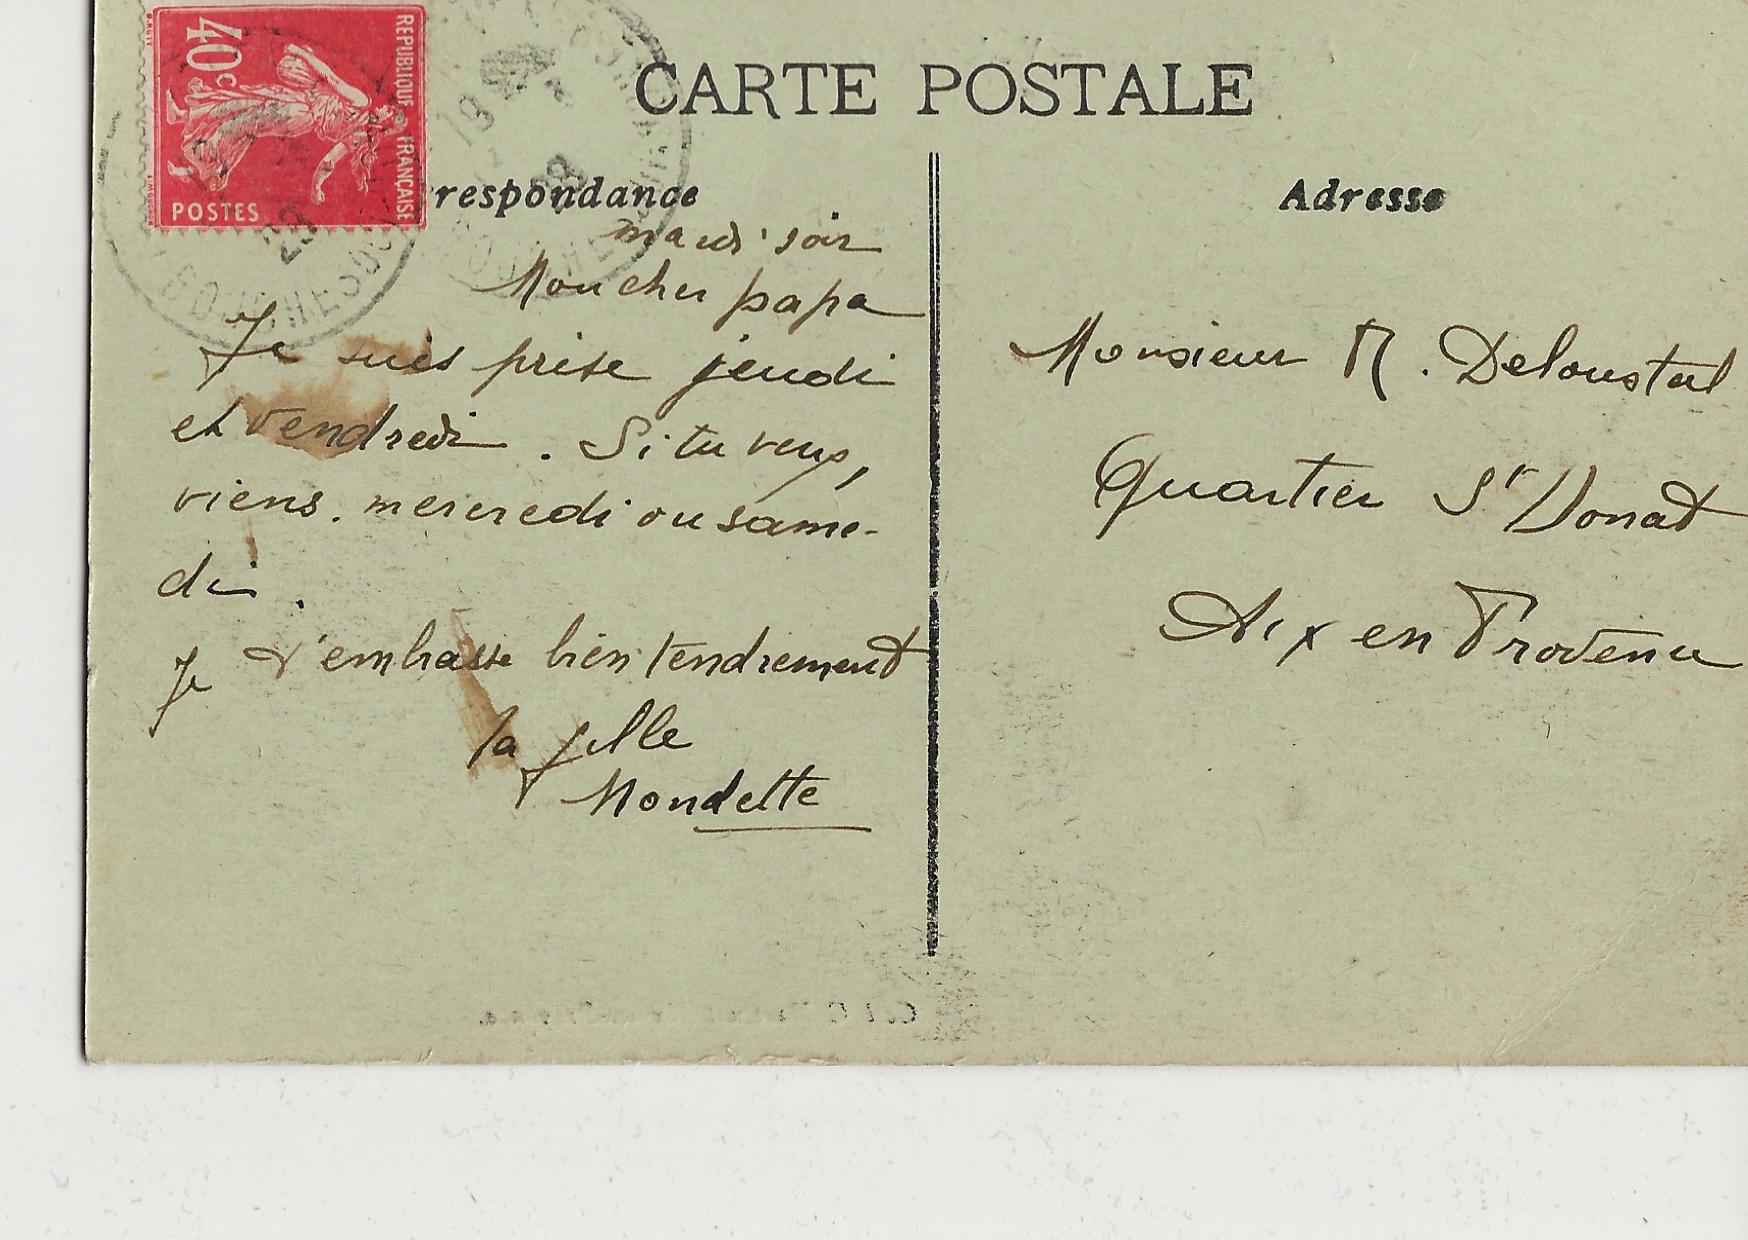 CARTE POSTALE
REPUBLIQUE FRANÇAISE
40c
POSTES
respondance
mardi soir
Mon cher papa
Je suis prise jeudi
et vendredi. Si tu veux,
viens mercredi ou same-
di.
Je t'embrasse bien tendrement
ta fille
Mondette
Adresse
Monsieur M. Deloustal
Quartier St Donat
Aix en Provence